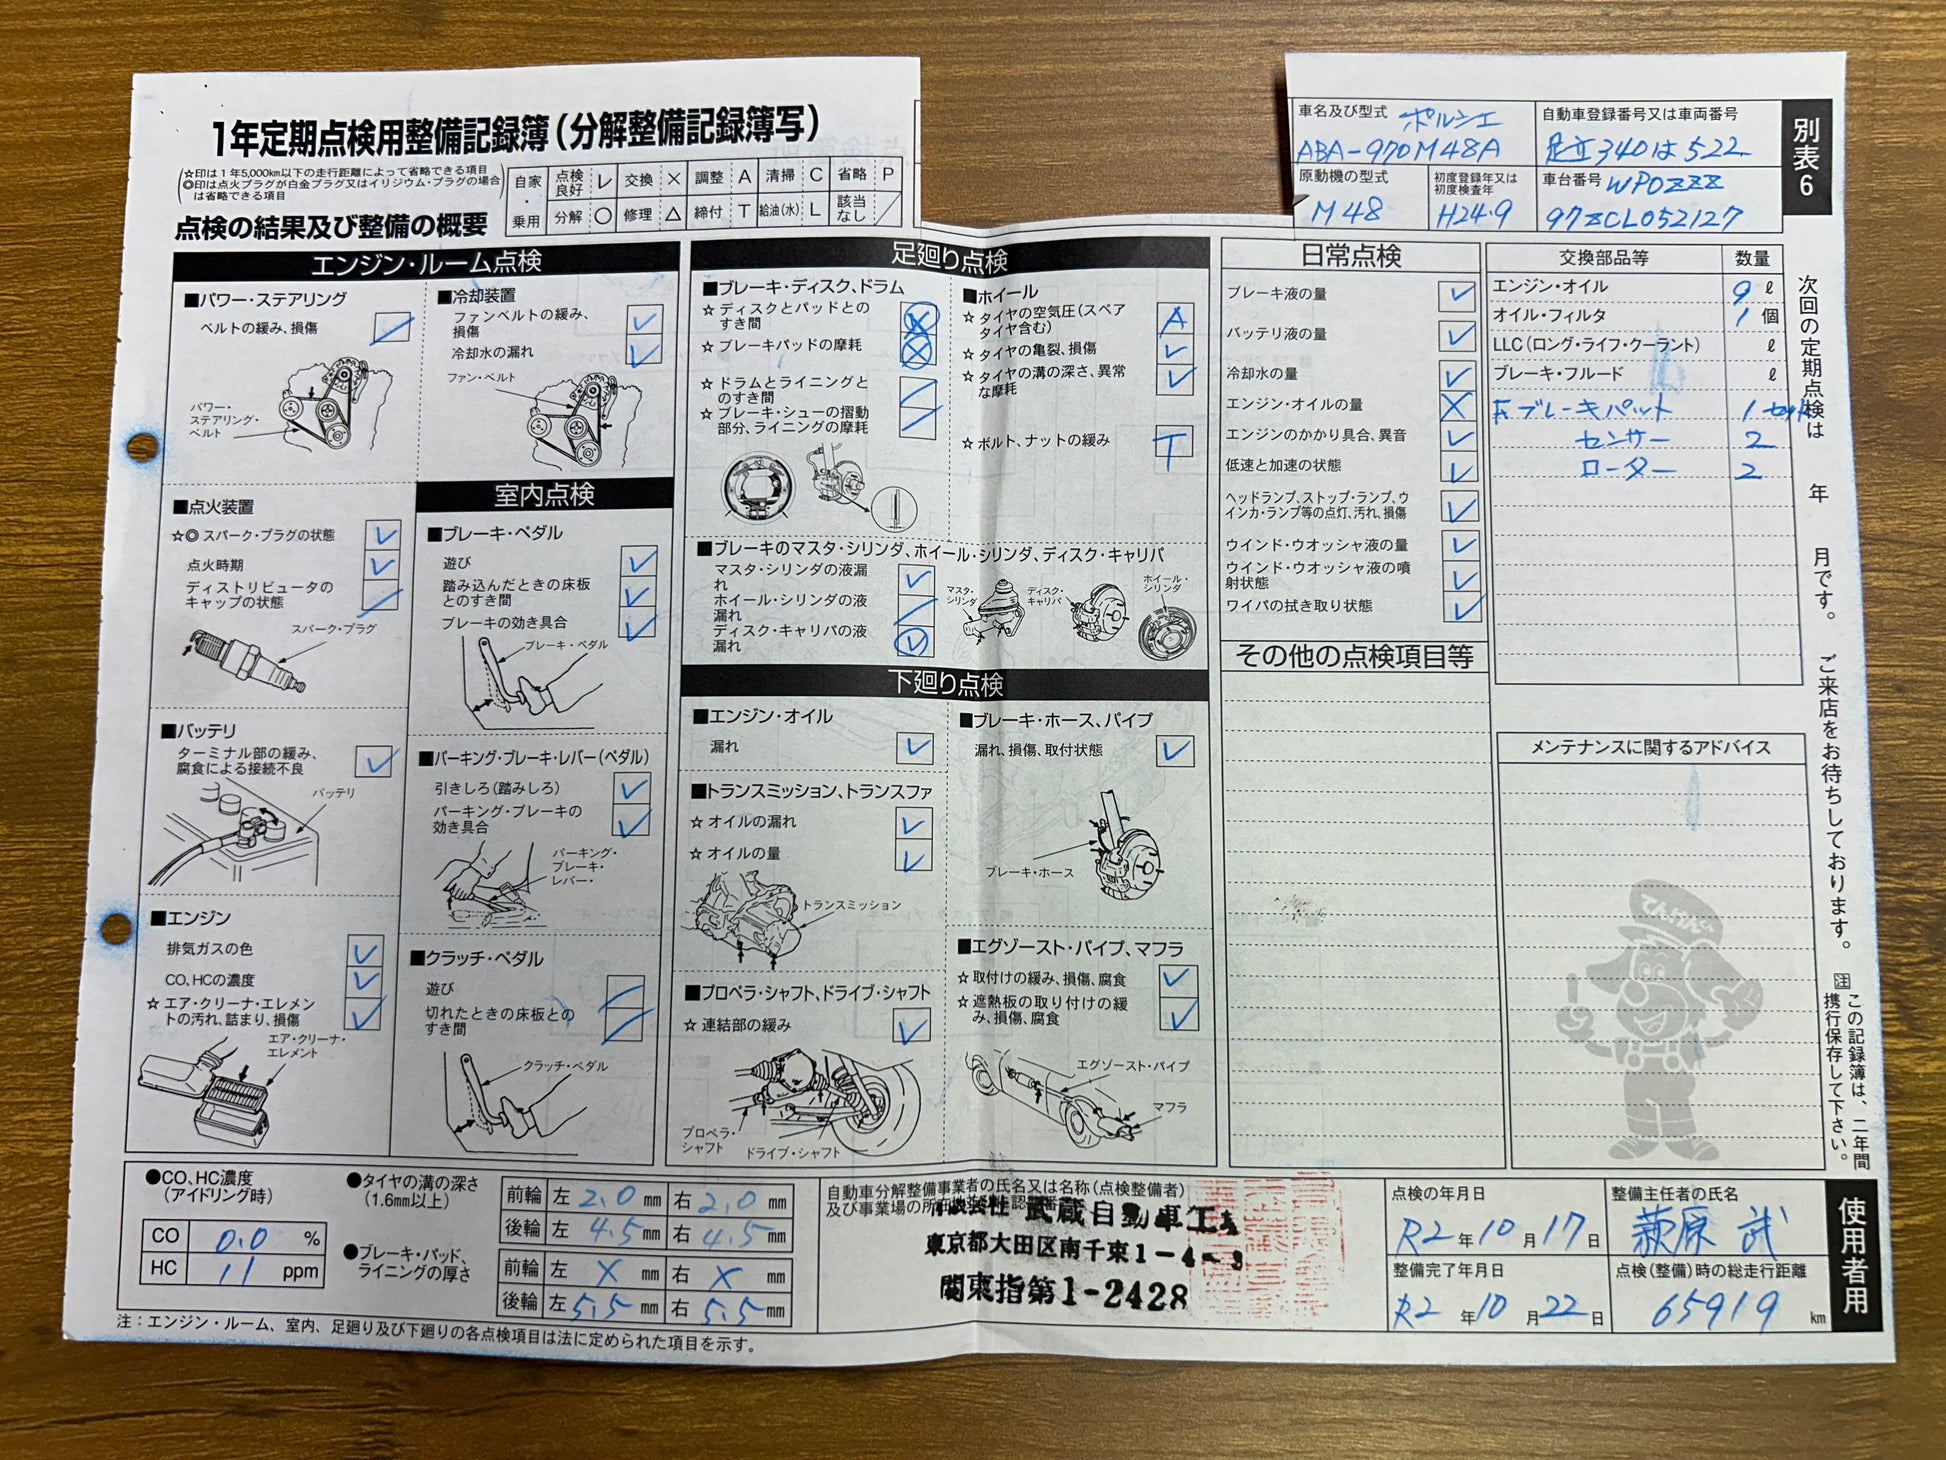 1年定期点検用整備記録簿(分解整備記録簿写)
☆印は1年5,000km以下の走行距離によって省略できる項目
◎印は点火プラグが白金プラグ又はイリジウム・プラグの場合は省略できる項目
点検の結果及び整備の概要
自家・乗用
点検良好 レ 交換 × 調整 A 清掃 C 省略 P
分解 ○ 修理 △ 締付 T 給油(水) L 該当なし /
車名及び型式 ポルシェ
ABA-970M48A
自動車登録番号又は車両番号
足立340は522
原動機の型式
M48
初度登録年又は初度検査年
H24.9
車台番号 WP0ZZZ
97ZCL052127
別表6
エンジン・ルーム点検
■パワー・ステアリング
ベルトの緩み、損傷
パワー・ステアリング・ベルト
■冷却装置
ファンベルトの緩み、損傷
冷却水の漏れ
ファン・ベルト
■点火装置
☆◎ スパーク・プラグの状態
点火時期
ディストリビュータのキャップの状態
スパーク・プラグ
■バッテリ
ターミナル部の緩み、腐食による接続不良
バッテリ
■エンジン
排気ガスの色
CO、HCの濃度
☆ エア・クリーナ・エレメントの汚れ、詰まり、損傷
エア・クリーナ・エレメント
室内点検
■ブレーキ・ペダル
遊び
踏み込んだときの床板とのすき間
ブレーキの効き具合
ブレーキ・ペダル
■パーキング・ブレーキ・レバー(ペダル)
引きしろ(踏みしろ)
パーキング・ブレーキの効き具合
パーキング・ブレーキ・レバー・
■クラッチ・ペダル
遊び
切れたときの床板とのすき間
クラッチ・ペダル
足廻り点検
■ブレーキ・ディスク、ドラム
☆ ディスクとパッドとのすき間
☆ ブレーキパッドの摩耗
☆ ドラムとライニングとのすき間
☆ ブレーキ・シューの摺動部分、ライニングの摩耗
■ホイール
☆ タイヤの空気圧(スペアタイヤ含む) A
☆ タイヤの亀裂、損傷
☆ タイヤの溝の深さ、異常な摩耗
☆ ボルト、ナットの緩み T
■ブレーキのマスタ・シリンダ、ホイール・シリンダ、ディスク・キャリパ
マスタ・シリンダの液漏れ
ホイール・シリンダの液漏れ
ディスク・キャリパの液漏れ
マスタ・シリンダ
ディスク・キャリパ
ホイール・シリンダ
下廻り点検
■エンジン・オイル
漏れ
■トランスミッション、トランスファ
☆ オイルの漏れ
☆ オイルの量
トランスミッション
■プロペラ・シャフト、ドライブ・シャフト
☆ 連結部の緩み
プロペラ・シャフト
ドライブ・シャフト
■ブレーキ・ホース、パイプ
漏れ、損傷、取付状態
ブレーキ・ホース
■エグゾースト・パイプ、マフラ
☆ 取付けの緩み、損傷、腐食
☆ 遮熱板の取り付けの緩み、損傷、腐食
エグゾースト・パイプ
マフラ
日常点検
ブレーキ液の量
バッテリ液の量
冷却水の量
エンジン・オイルの量
エンジンのかかり具合、異音
低速と加速の状態
ヘッドランプ、ストップ・ランプ、ウインカ・ランプ等の点灯、汚れ、損傷
ウインド・ウオッシャ液の量
ウインド・ウオッシャ液の噴射状態
ワイパの拭き取り状態
その他の点検項目等
交換部品等 数量
エンジン・オイル 9 ℓ
オイル・フィルタ 1 個
LLC(ロング・ライフ・クーラント) ℓ
ブレーキ・フルード ℓ
F.ブレーキパット 1セット
センサー 2
ローター 2
メンテナンスに関するアドバイス
てんけんくん
次回の定期点検は 年 月です。ご来店をお待ちしております。
注 この記録簿は、二年間携行保存して下さい。
●CO、HC濃度(アイドリング時)
CO 0.0 %
HC 11 ppm
●タイヤの溝の深さ(1.6mm以上)
前輪 左 2.0 mm 右 2.0 mm
後輪 左 4.5 mm 右 4.5 mm
●ブレーキ・パッド、ライニングの厚さ
前輪 左 X mm 右 X mm
後輪 左 5.5 mm 右 5.5 mm
自動車分解整備事業者の氏名又は名称(点検整備者)
及び事業場の所在地
武蔵自動車工
東京都大田区南千束1-4-3
関東指第1-2428
点検の年月日
R2年10月17日
整備完了年月日
R2年10月22日
整備主任者の氏名
萩原 武
点検(整備)時の総走行距離
65919 km
使用者用
注:エンジン・ルーム、室内、足廻り及び下廻りの各点検項目は法に定められた項目を示す。